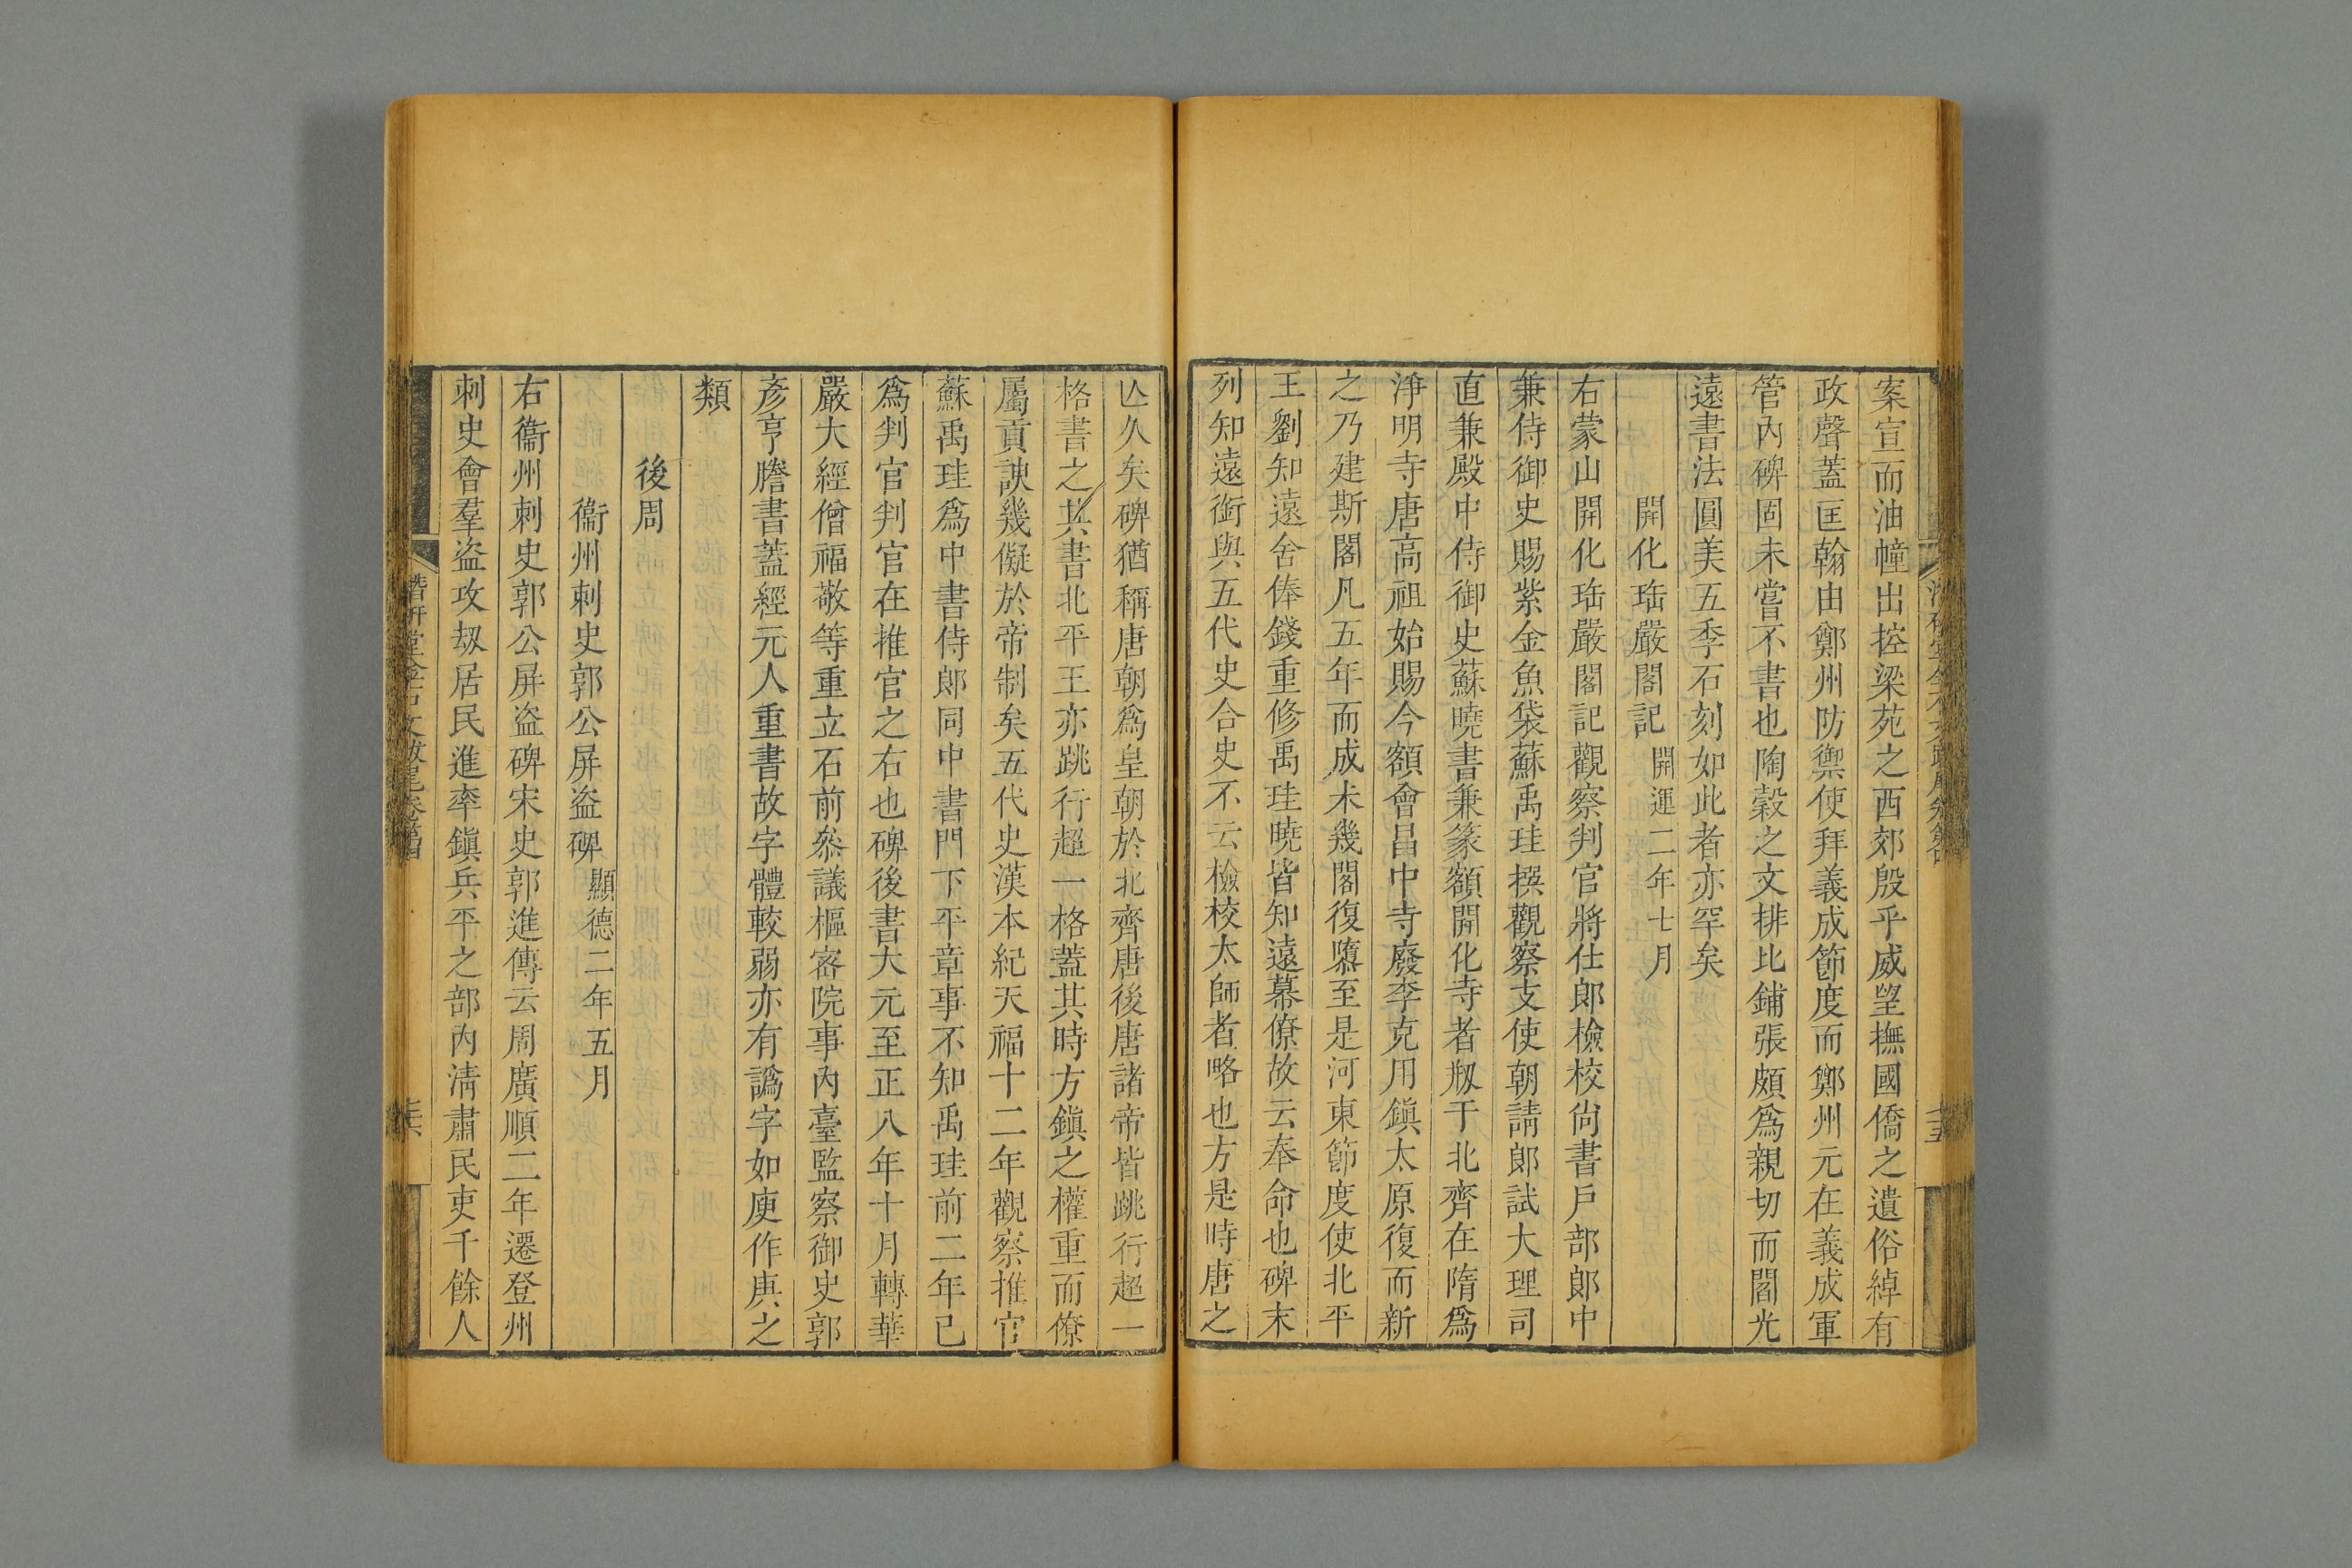 案宣而油幢出控梁苑之西郊殷乎威望撫國僑之遺俗綽有
政聲蓋匡翰由鄭州防禦使拜義成節度而鄭州元在義成軍
管內碑固未嘗不書也陶穀之文排比鋪張頗爲親切而閻光
遠書法圓美五季石刻如此者亦罕矣
開化珤嚴閣記 開運二年七月
右蒙山開化珤嚴閣記觀察判官將仕郎檢校尙書戶部郎中
兼侍御史賜紫金魚袋蘇禹珪撰觀察支使朝請郎試大理司
直兼殿中侍御史蘇曉書兼篆額開化寺者剏于北齊在隋爲
淨明寺唐高祖始賜今額會昌中寺廢李克用鎭太原復而新
之乃建斯閣凡五年而成未幾閣復隳至是河東節度使北平
王劉知遠舍俸錢重修禹珪曉皆知遠幕僚故云奉命也碑末
列知遠銜與五代史合史不云檢校太師者略也方是時唐之
亾久矣碑猶稱唐朝爲皇朝於北齊唐後唐諸帝皆跳行超一
格書之其書北平王亦跳行超一格蓋其時方鎭之權重而僚
屬貢諛幾儗於帝制矣五代史漢本紀天福十二年觀察推官
蘇禹珪爲中書侍郎同中書門下平章事不知禹珪前二年已
爲判官判官在推官之右也碑後書大元至正八年十月轉華
嚴大經僧福敬等重立石前叅議樞密院事內臺監察御史郭
彥亨謄書蓋經元人重書故字體較弱亦有譌字如庾作庚之
類
後周
衞州刺史郭公屏盜碑 顯德二年五月
右衞州刺史郭公屏盜碑宋史郭進傳云周廣順二年遷登州
刺史會羣盜攻刼居民進率鎭兵平之部內淸肅民吏千餘人
潛硏堂金石文跋尾卷第四